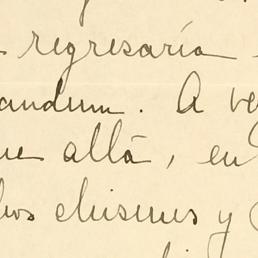 regresaría
andum. A ve
ue allá, en
hos chismes y